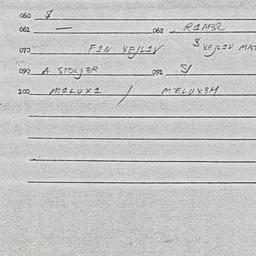 060 $
061 — 062 R1M3R
070 F1N VEJL1V $ VEJL1V MAT
090 A STOLJ3R 091 $/
100 M1LUX1 / M'ELUX3M